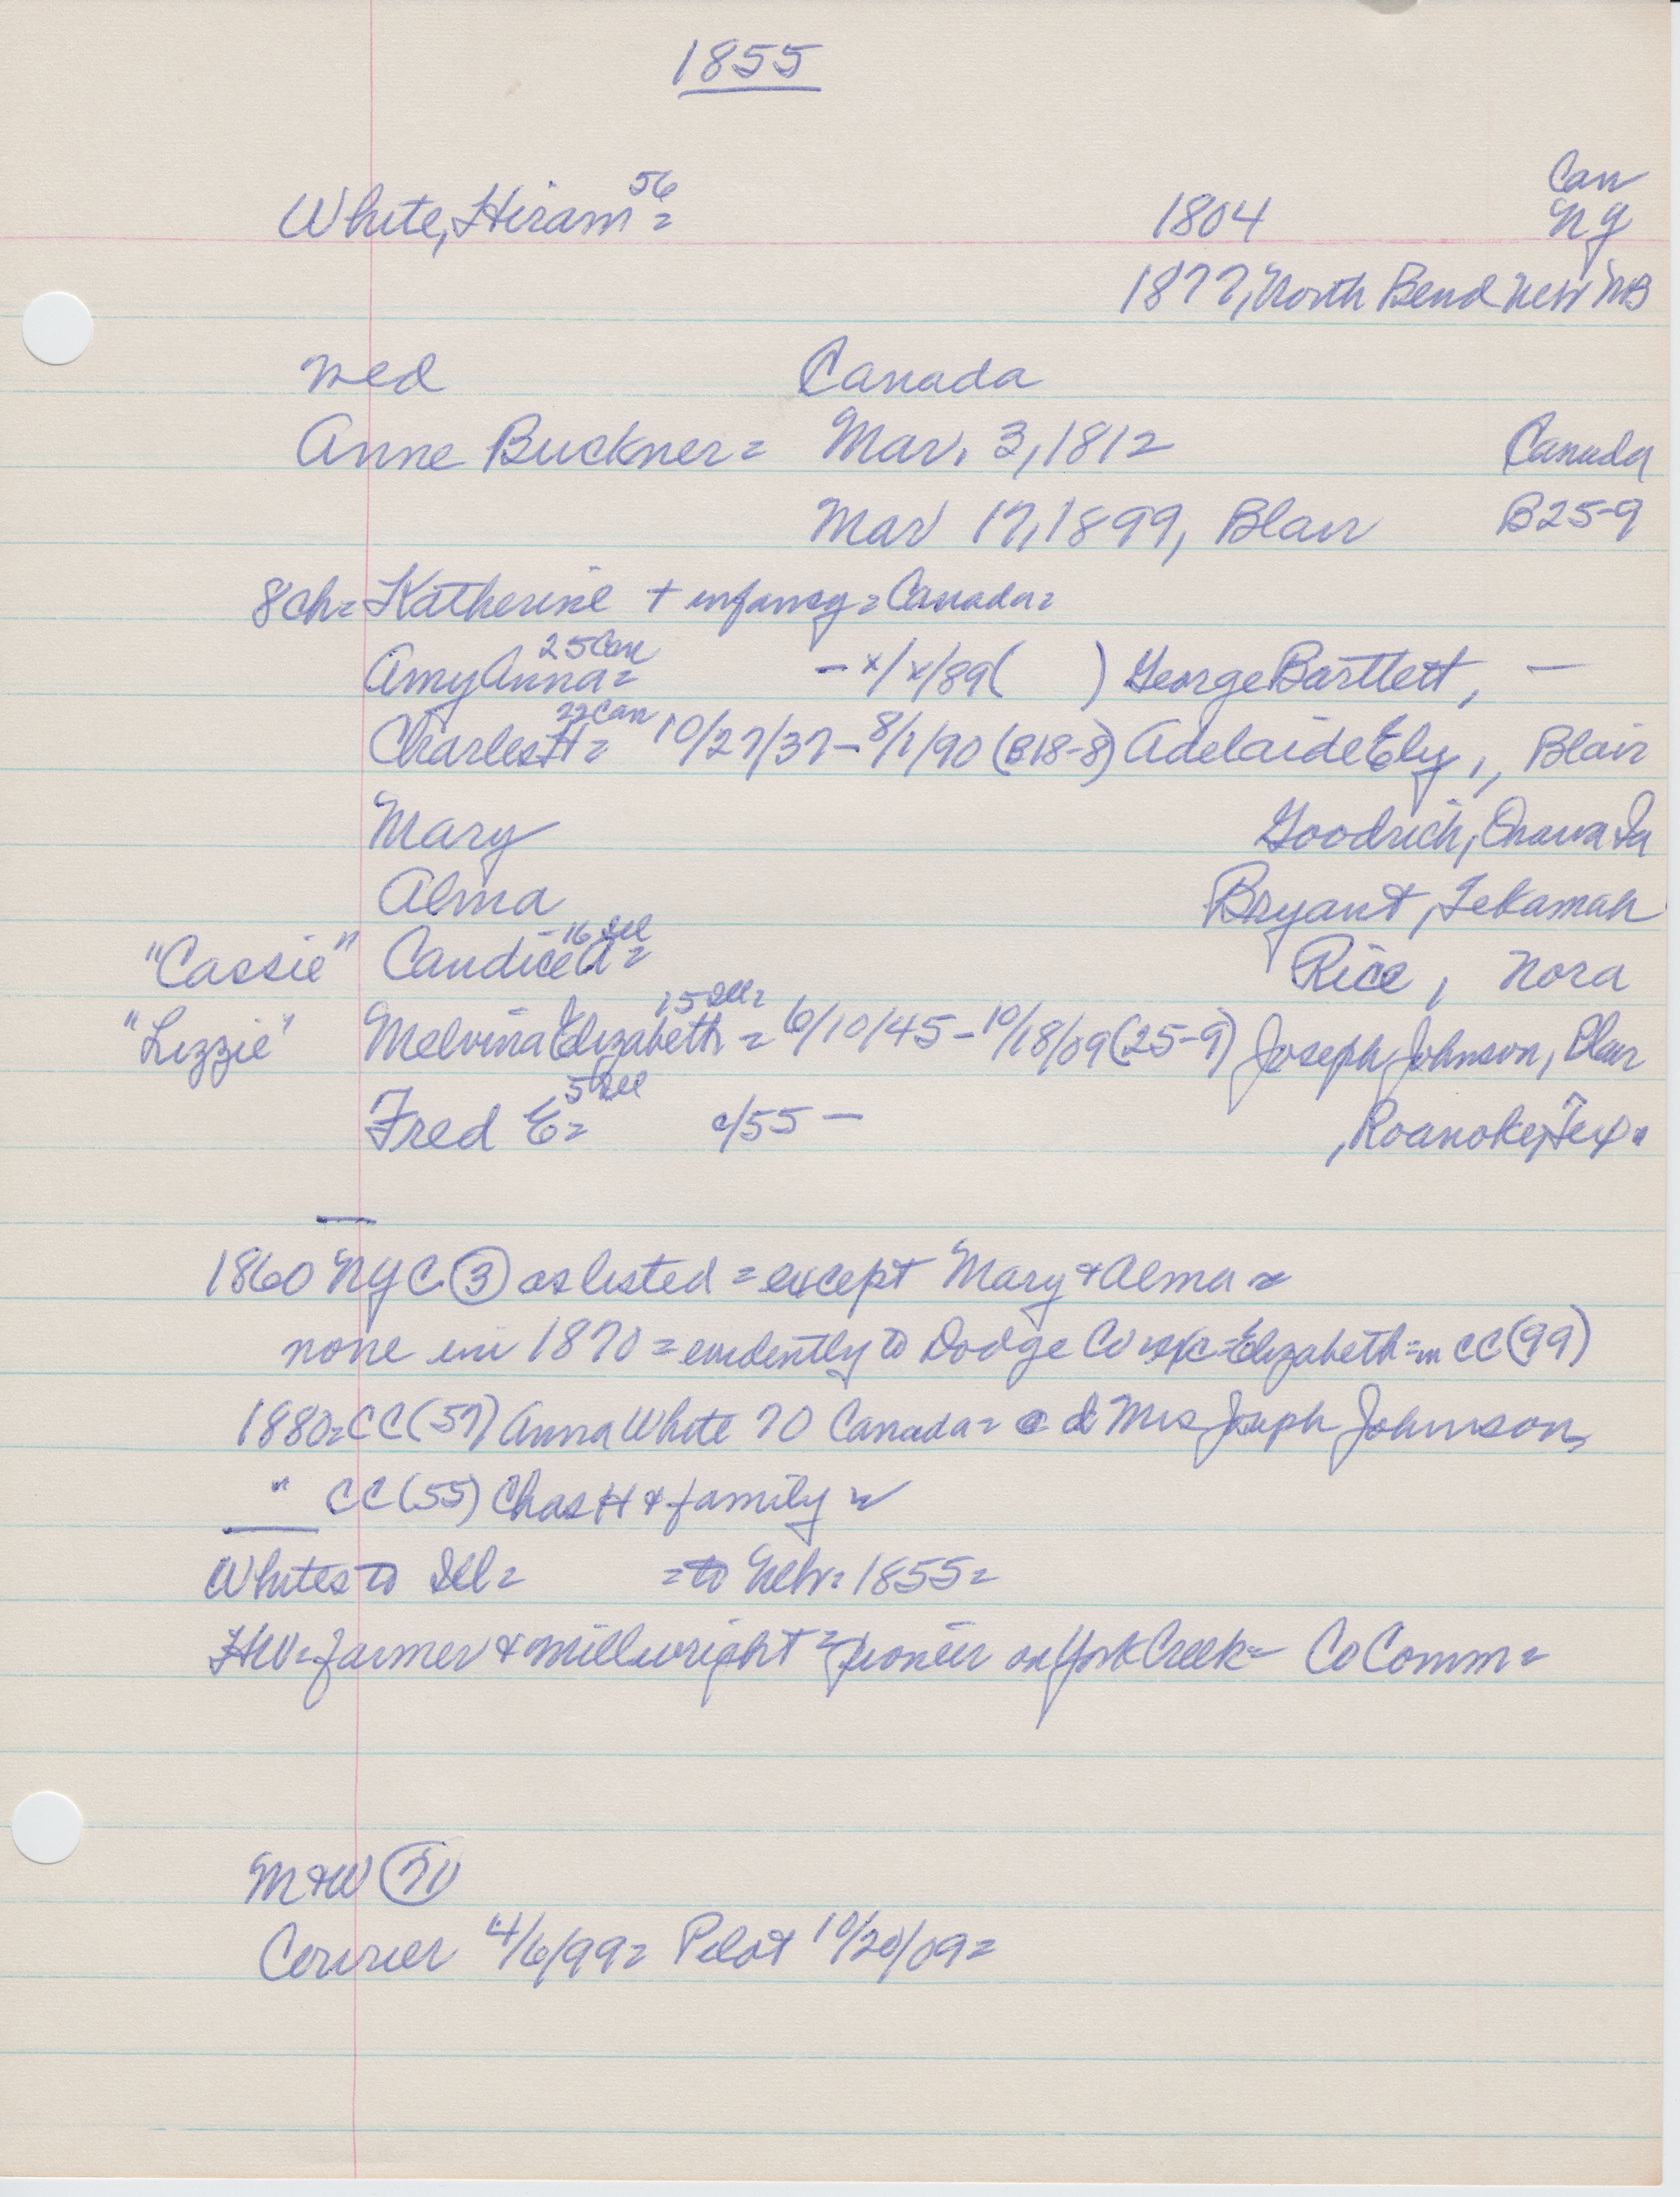 1855
56 Can
White, Hiram = 1804 NY
1877, North Bend Nebr NB
med Canada
Anne Buckner = Mar. 3, 1812 Canada
Mar 17, 1899, Blair B25-9
8ch= Katherine + infancy = Canada =
25 Can
Amy Anna = - x/x/89 ( ) George Bartlett, —
22 Can
Charles H = 10/27/37 - 8/1/90 (B18-8) Adelaide Ely, , Blair
Mary Goodrich, Onawa Ia
Alma Bryant, Tekamah
16 Ill
"Cassie" Candice A = Rice, Nora
15 Ill =
"Lizzie" Melvina Elizabeth = 6/10/45 - 10/18/09 (25-9) Joseph Johnson, Blair
5 Ill
Fred E = c/55 — , Roanoke, Tex.
1860 NYC (3) as listed = except Mary + Alma =
none in 1870 = evidently to Dodge Co exc = Elizabeth = in CC (99)
1880 = CC (57) Anna White 70 Canada = Mrs Joseph Johnson,
" CC (55) Chas H & family
Whites to Ill = = to Nebr = 1855 =
HW = farmer & millwright = pioneer on York Creek = Co Comm =
M & W (71)
Courier 4/6/99 = Pilot 10/20/09 =